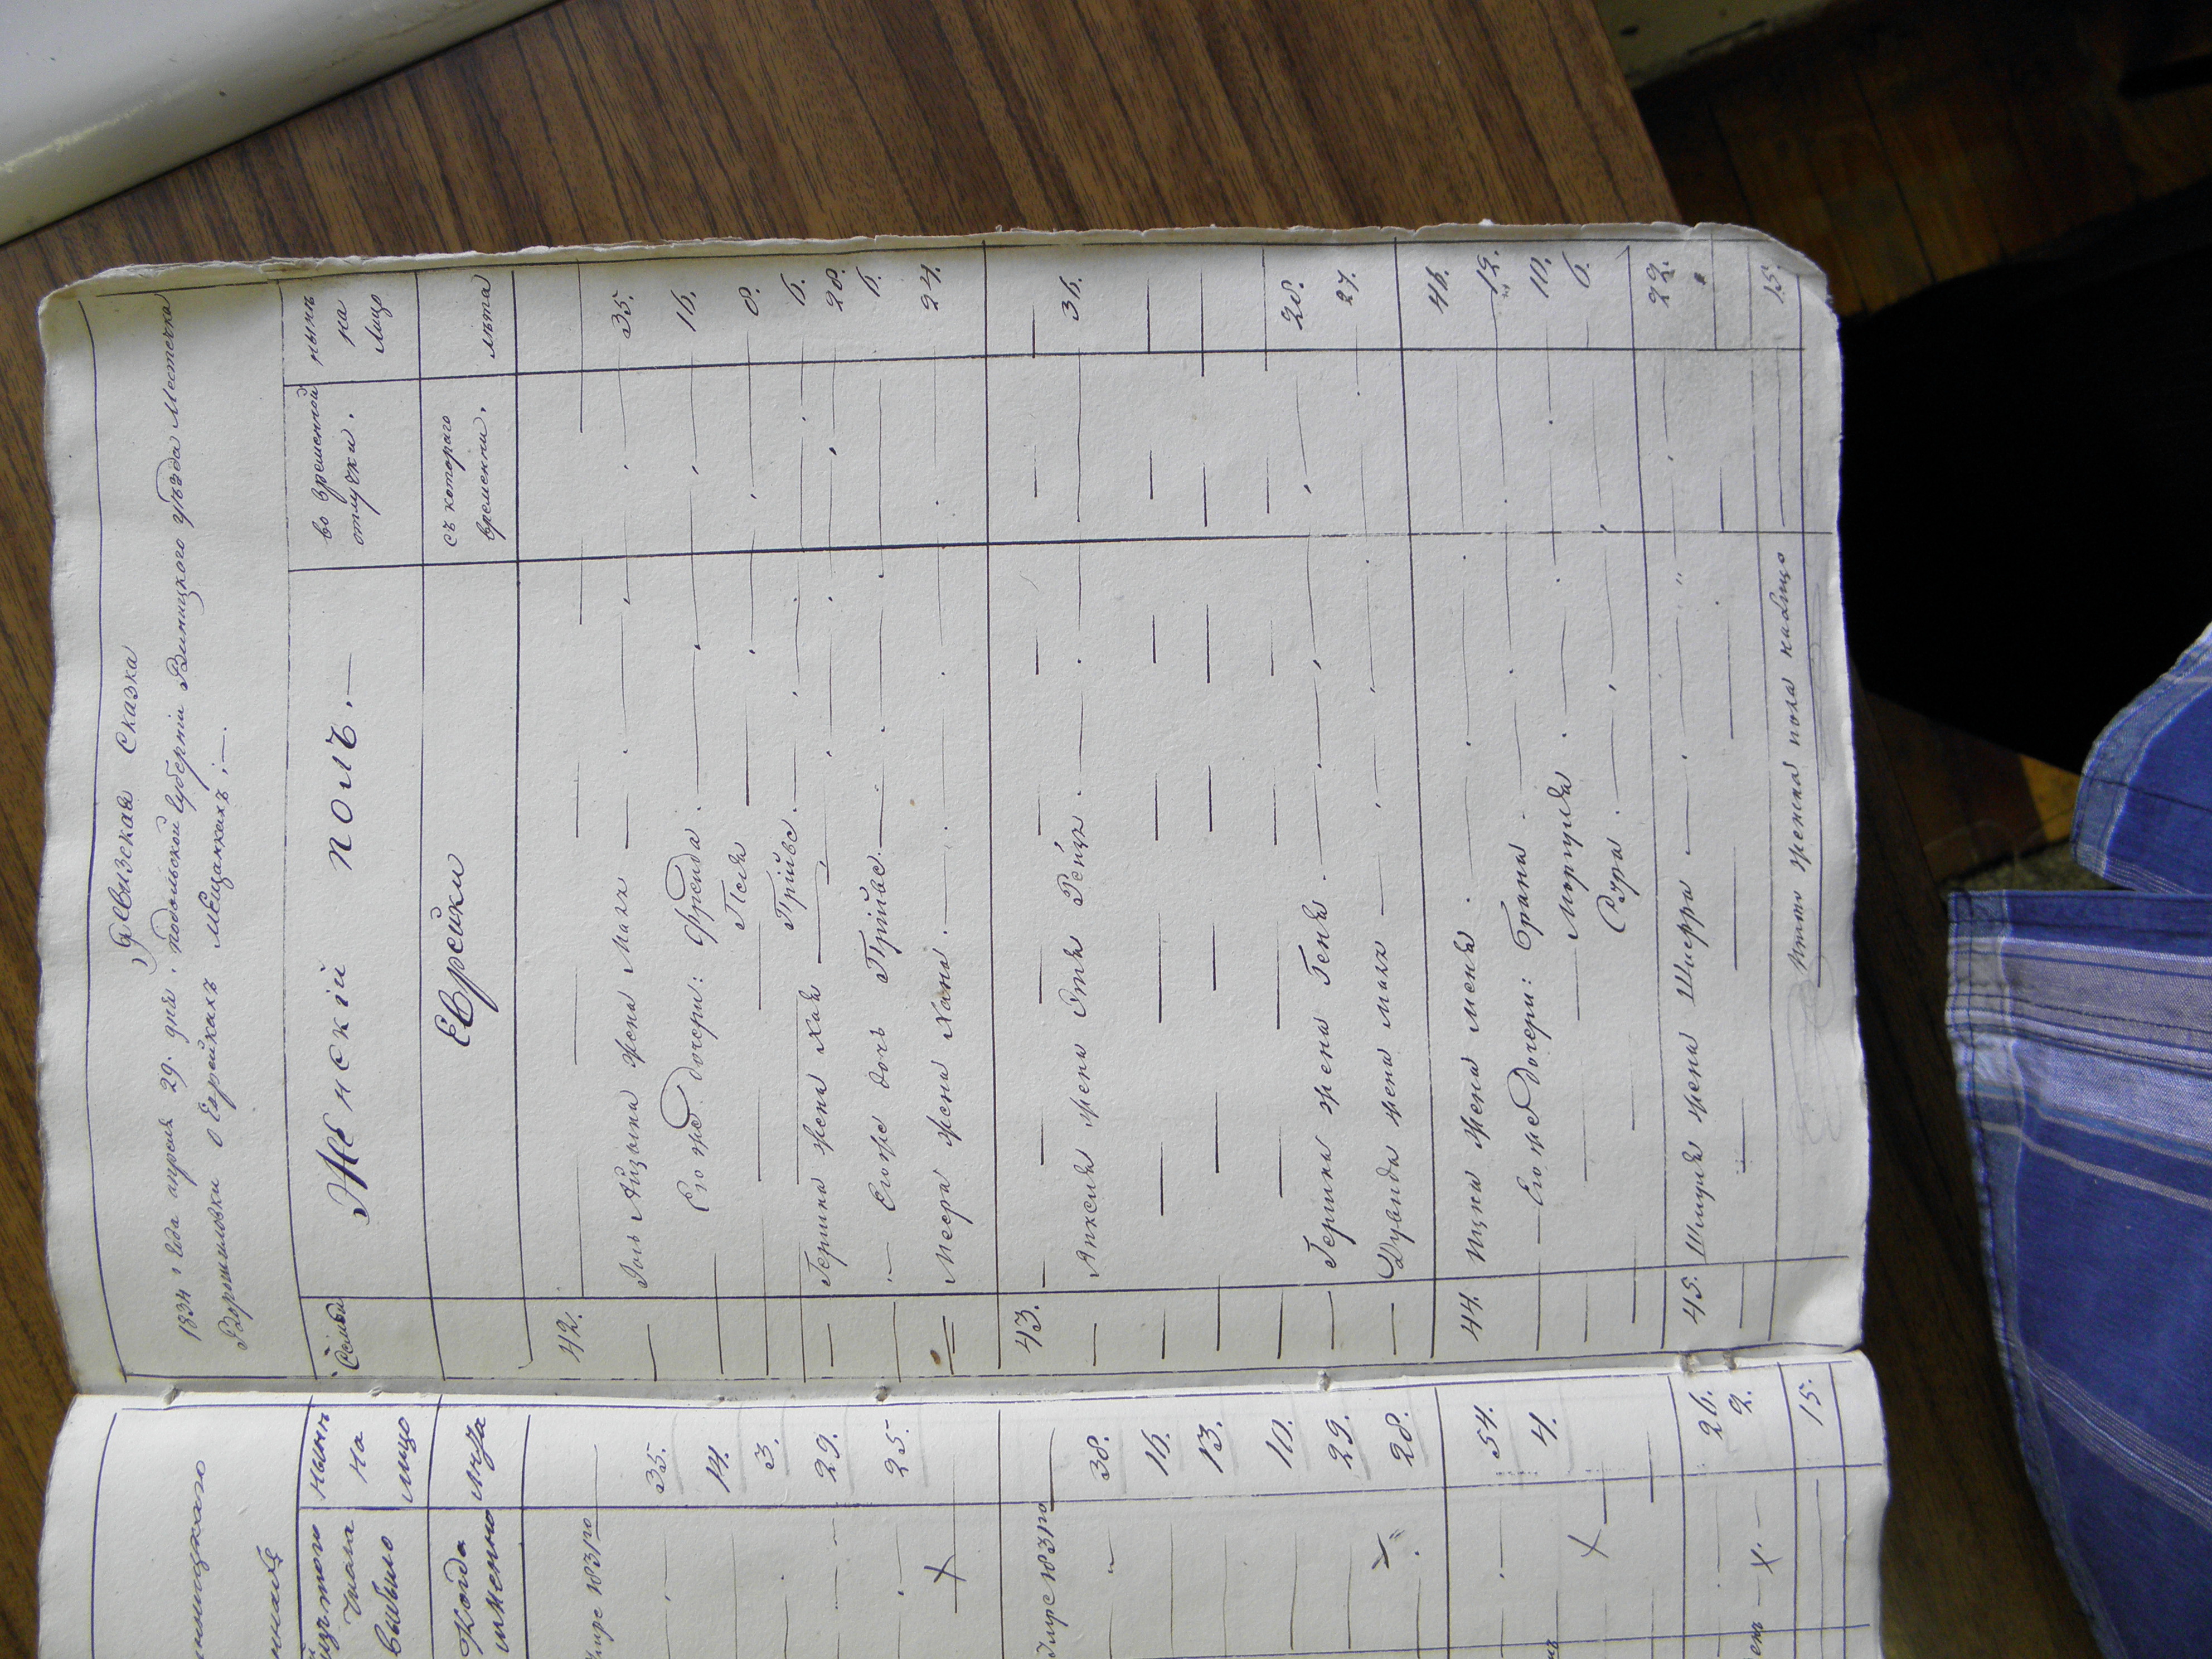 Ревизская Сказка
1834 года апреля 29. дня. подольской губернии Винницкого уѣзда Местечка
Ворошиловки о Еврейкахъ мещанкахъ;—
Семьи
Женскій полъ.—
во временной отлучки.
нынѣ на лицо
Еврейки
съ котораго времени.
лѣта
42.
Іось Айзыка жена Малх 35.
Его же дочери: Фрейда. 16.
Песя 8.
Прійва. 6.
Гершка жена Хая 28.
Его же дочь Прійва. 6.
Меера жена Хана. 24.
43.
Янкеля жена Этя Рейця. 36.
Гершка жена Геня. 28.
Дувида жена Малх 27.
44. Ицка жена Меня. 46.
Его же дочери: Брана 12.
Маргуля 10.
Сура. 6.
45. Шмуля жена Шифра 22.
Итого женска пола налицо 15.
винницкаго
нынѣ на лицо
изъ того числа выбыло
Когда именно
лѣта
1831го
35.
14.
3.
29.
25.
1831го
38.
16.
13.
10.
29.
28.
54.
4.
26.
2.
15.